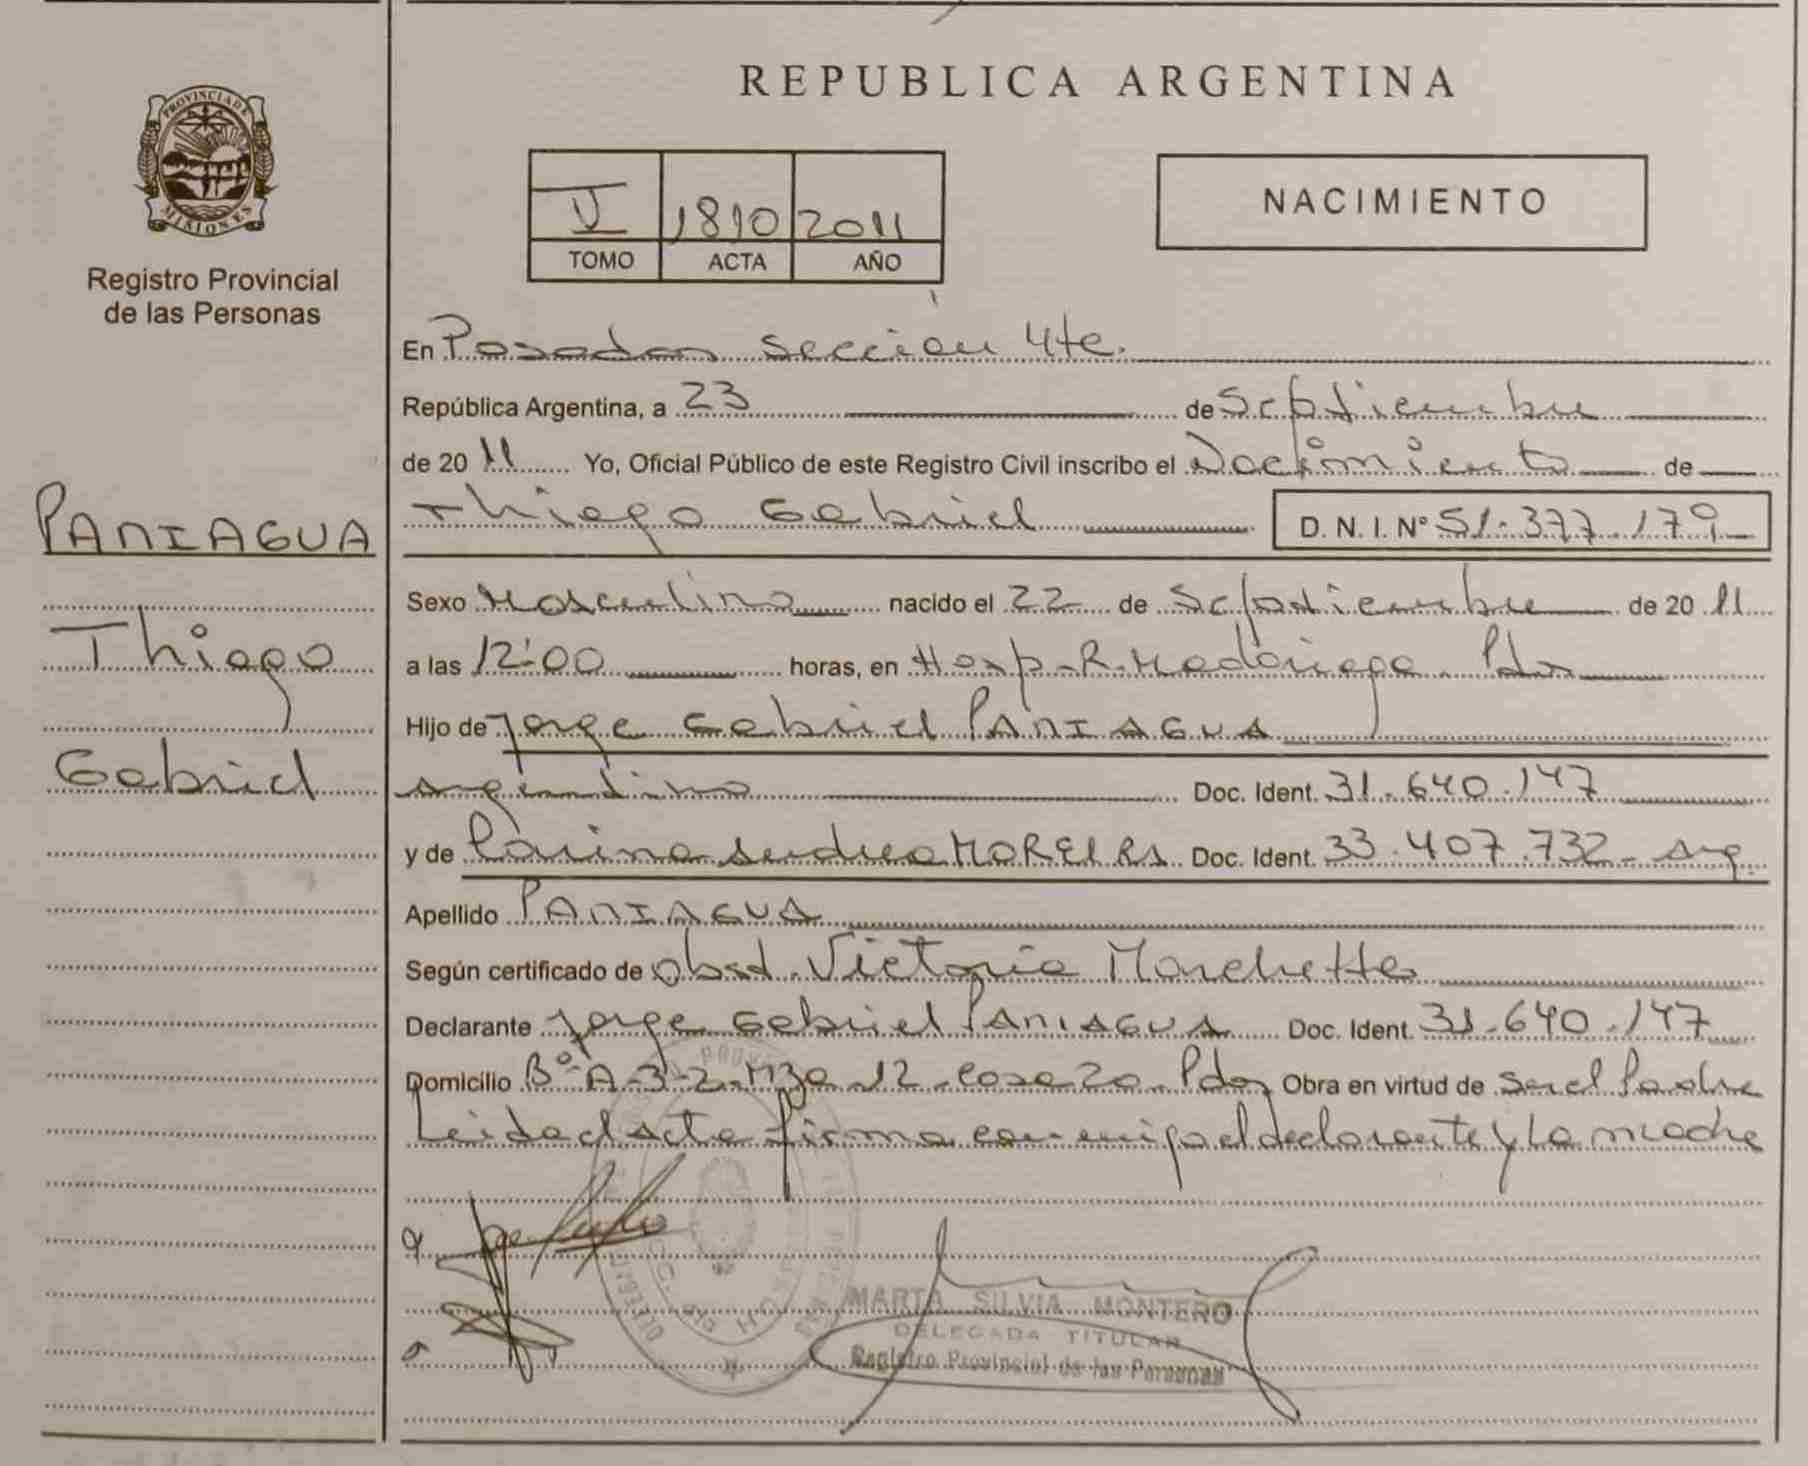 PROVINCIA DE
MISIONES
Registro Provincial
de las Personas
PANIAGUA
Thiago
Gabriel
REPUBLICA ARGENTINA
V 1810 2011
TOMO ACTA AÑO
NACIMIENTO
En Posadas Sección 4ta.
República Argentina, a 23 de Septiembre
de 2011 Yo, Oficial Público de este Registro Civil inscribo el Nacimiento de
Thiago Gabriel D. N. I. Nº 51.377.179
Sexo Masculino nacido el 22 de Septiembre de 2011
a las 12:00 horas, en Hosp. R. Madariaga. Pdas
Hijo de Jorge Gabriel PANIAGUA
argentino Doc. Ident. 31.640.147
y de MOREIRA Doc. Ident. 33.407.732 - arg.
Apellido PANIAGUA
Según certificado de obst. Victoria Marchette
Declarante Jorge Gabriel PANIAGUA Doc. Ident. 31.640.147
Domicilio Bº A-3-2-Mza 12-casa 20-Pdas Obra en virtud de Ser el Padre
Leida el acta firma con-migo el declarante y la madre
MARTA SILVIA MONTERO
DELEGADA TITULAR
Registro Provincial de las Personas